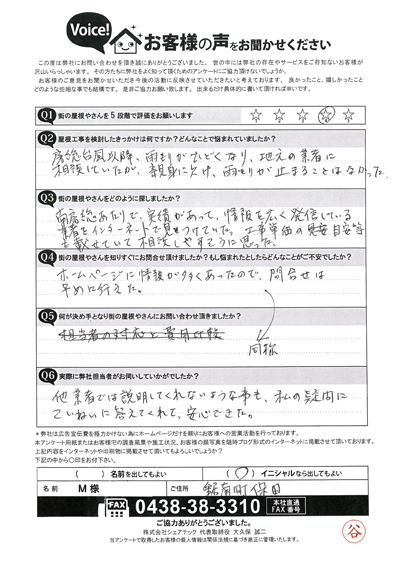 Voice!
お客様の声をお聞かせください
この度は弊社にお問い合わせを頂き誠にありがとうございました。世の中には弊社の存在やサービスをご存知ないお客様が
沢山いらっしゃいます。その方たちに弊社をよく知って頂くためのアンケートにご協力頂けないでしょうか。
お客様のご意見をお聞かせいただき今後の活動に反映させていただきたいと考えております。良かったこと、嬉しかったこと
どのような些細な事でも結構です。是非ご協力お願い致します。出来るだけ具体的に書いて頂ければ幸いです。
Q1 街の屋根やさんを5段階で評価をお願いします
Q2 屋根工事を検討したきっかけは何ですか?どんなことで悩まれていましたか?
房総台風以降、雨もりがひどくなり、地元の業者に
相談していたが、親身に欠け、雨もりが止まることはなかった。
Q3 街の屋根やさんをどのように探しましたか?
南房総あたりで、実績があって、情報を広く発信している
業者をインターネットで見つけていた。工事単価の見安目安等
も載せていて相談しやすそうに思った。
Q4 街の屋根やさんを知りすぐにお問合せ頂けましたか?もし悩まれたとしたらどんなことがご不安でしたか?
ホームページに情報が多くあったので、問合せは
早めに行えた。
Q5 何が決め手となり街の屋根やさんにお問い合わせ頂きましたか?
担当者の対応と費用比較
同様
Q6 実際に弊社担当者がお伺いしていかがでしたか?
他業者では説明してくれないような事も、私の疑問に
ていねいに答えてくれて、安心できた。
※弊社は広告宣伝費を極力かけない為にホームページだけを頼りにお客様への営業活動を行っております。
本アンケート用紙またはお客様宅の調査風景や施工状況、お客様の顔写真を随時ブログ形式のインターネットに掲載させて頂いております。
上記内容をインターネットや印刷物に掲載させて頂いてもよろしいでしょうか?
下記の中から〇印をお付け下さい。
( )名前を出してもよい (〇)イニシャルなら出してもよい
名前 M様 ご住所 鋸南町保田
FAX 0438-38-3310 本社直通 FAX番号
ご協力ありがとうございました。
株式会社シェアテック 代表取締役 大久保 誠二
当アンケートで取得したお客様の個人情報は関係法規に基づき厳正に管理いたします。
谷